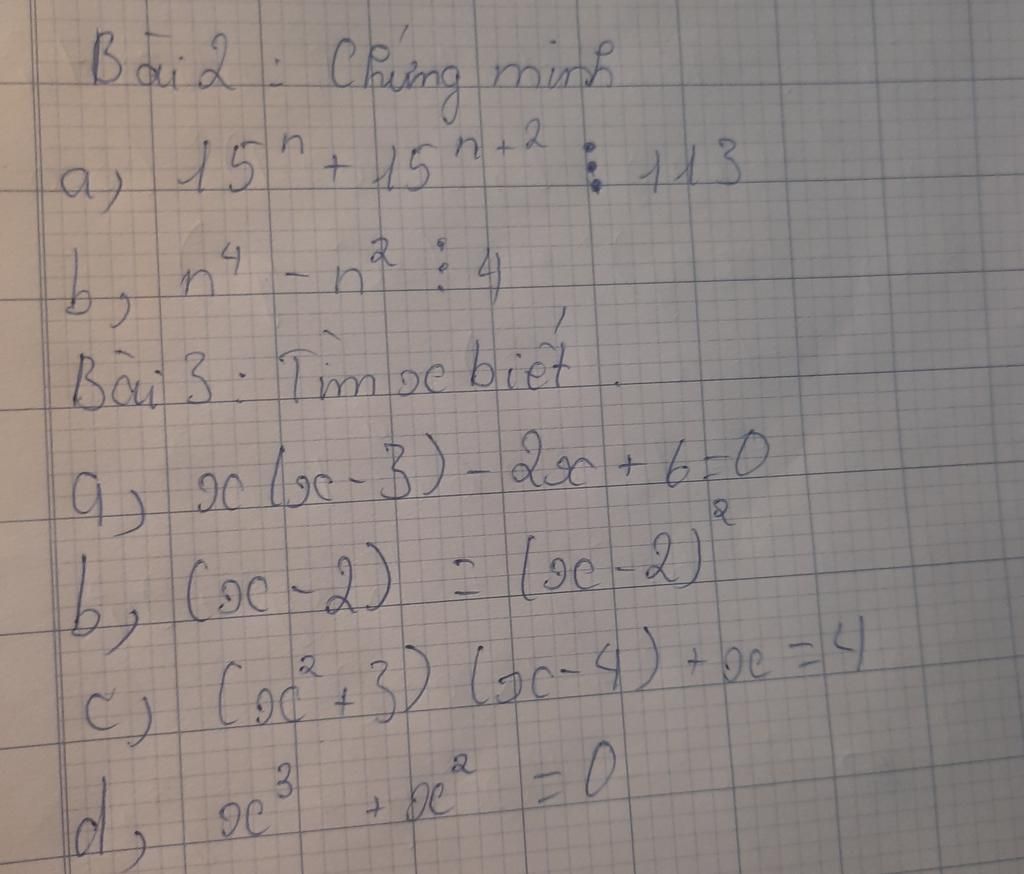 Bài 2 : Chứng minh
a, 15ⁿ + 15ⁿ⁺² ⋮ 113
b, n⁴ - n² ⋮ 4
Bài 3 : Tìm x biết .
a, x(x-3) - 2x + 6 = 0
b, (x-2) = (x-2)²
c, (x²+3) (x-4) + x = 4
d, x³ + x² = 0